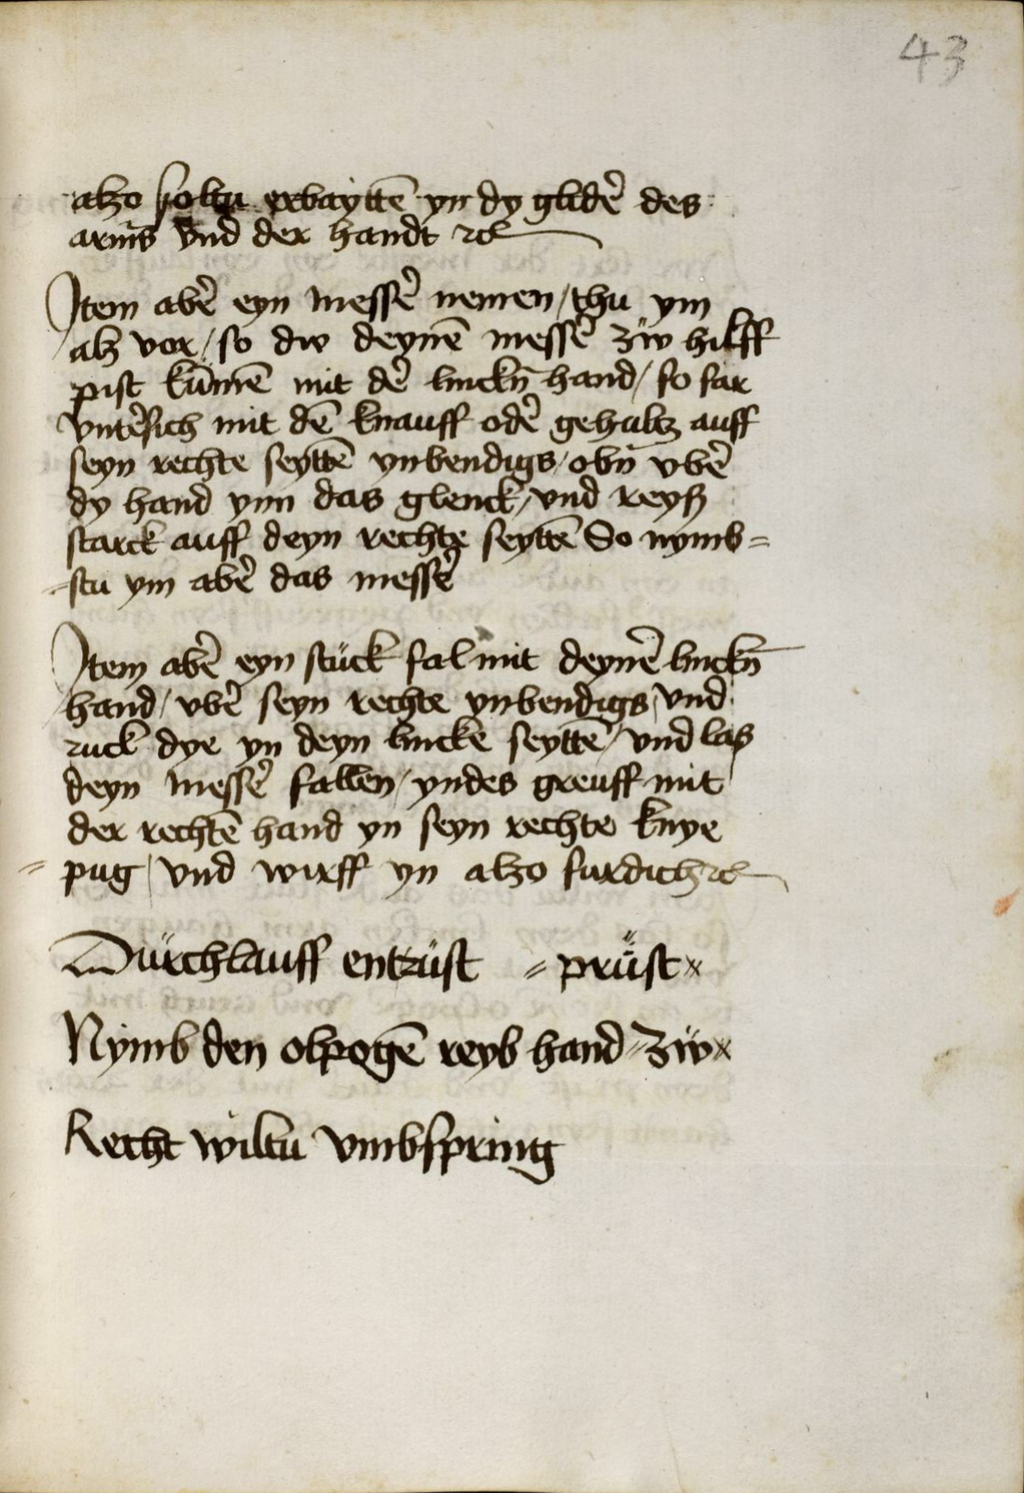 43
alzo soltu erbaÿttē yn dy glidē des
arms vnd der handt ꝛc
Item abē eyn messē nemen / thu ym
alz vor / so dw deynē messē zẅ hilff
pist kūmē mit dē linckn̄ hand / so far
vntēsich mit dē knauff odē gehultz auff
seyn rechte seyttē ynbendigs / obn̄ vbē
dy hand ynn das glenck / vnd reyß
starck auff deyn rechte seyttē So nymb=
=stu ym abē das messē
Item abē eyn stück fal mit deynē linckn̄
hand / vbē seyn rechte ynbendigs / vnd
ruck dye yn deyn lincke seyttē / vnd las
deyn messē fallen / yndes greuff mit
der rechtē hand yn seyn rechte knye
=pug / vnd wirff yn alzo fur dich ꝛc
Dürchlauff entrüst = prüst x
Nymb den olpogē reyb hand = zẅ x
Recht wiltu vmbspring